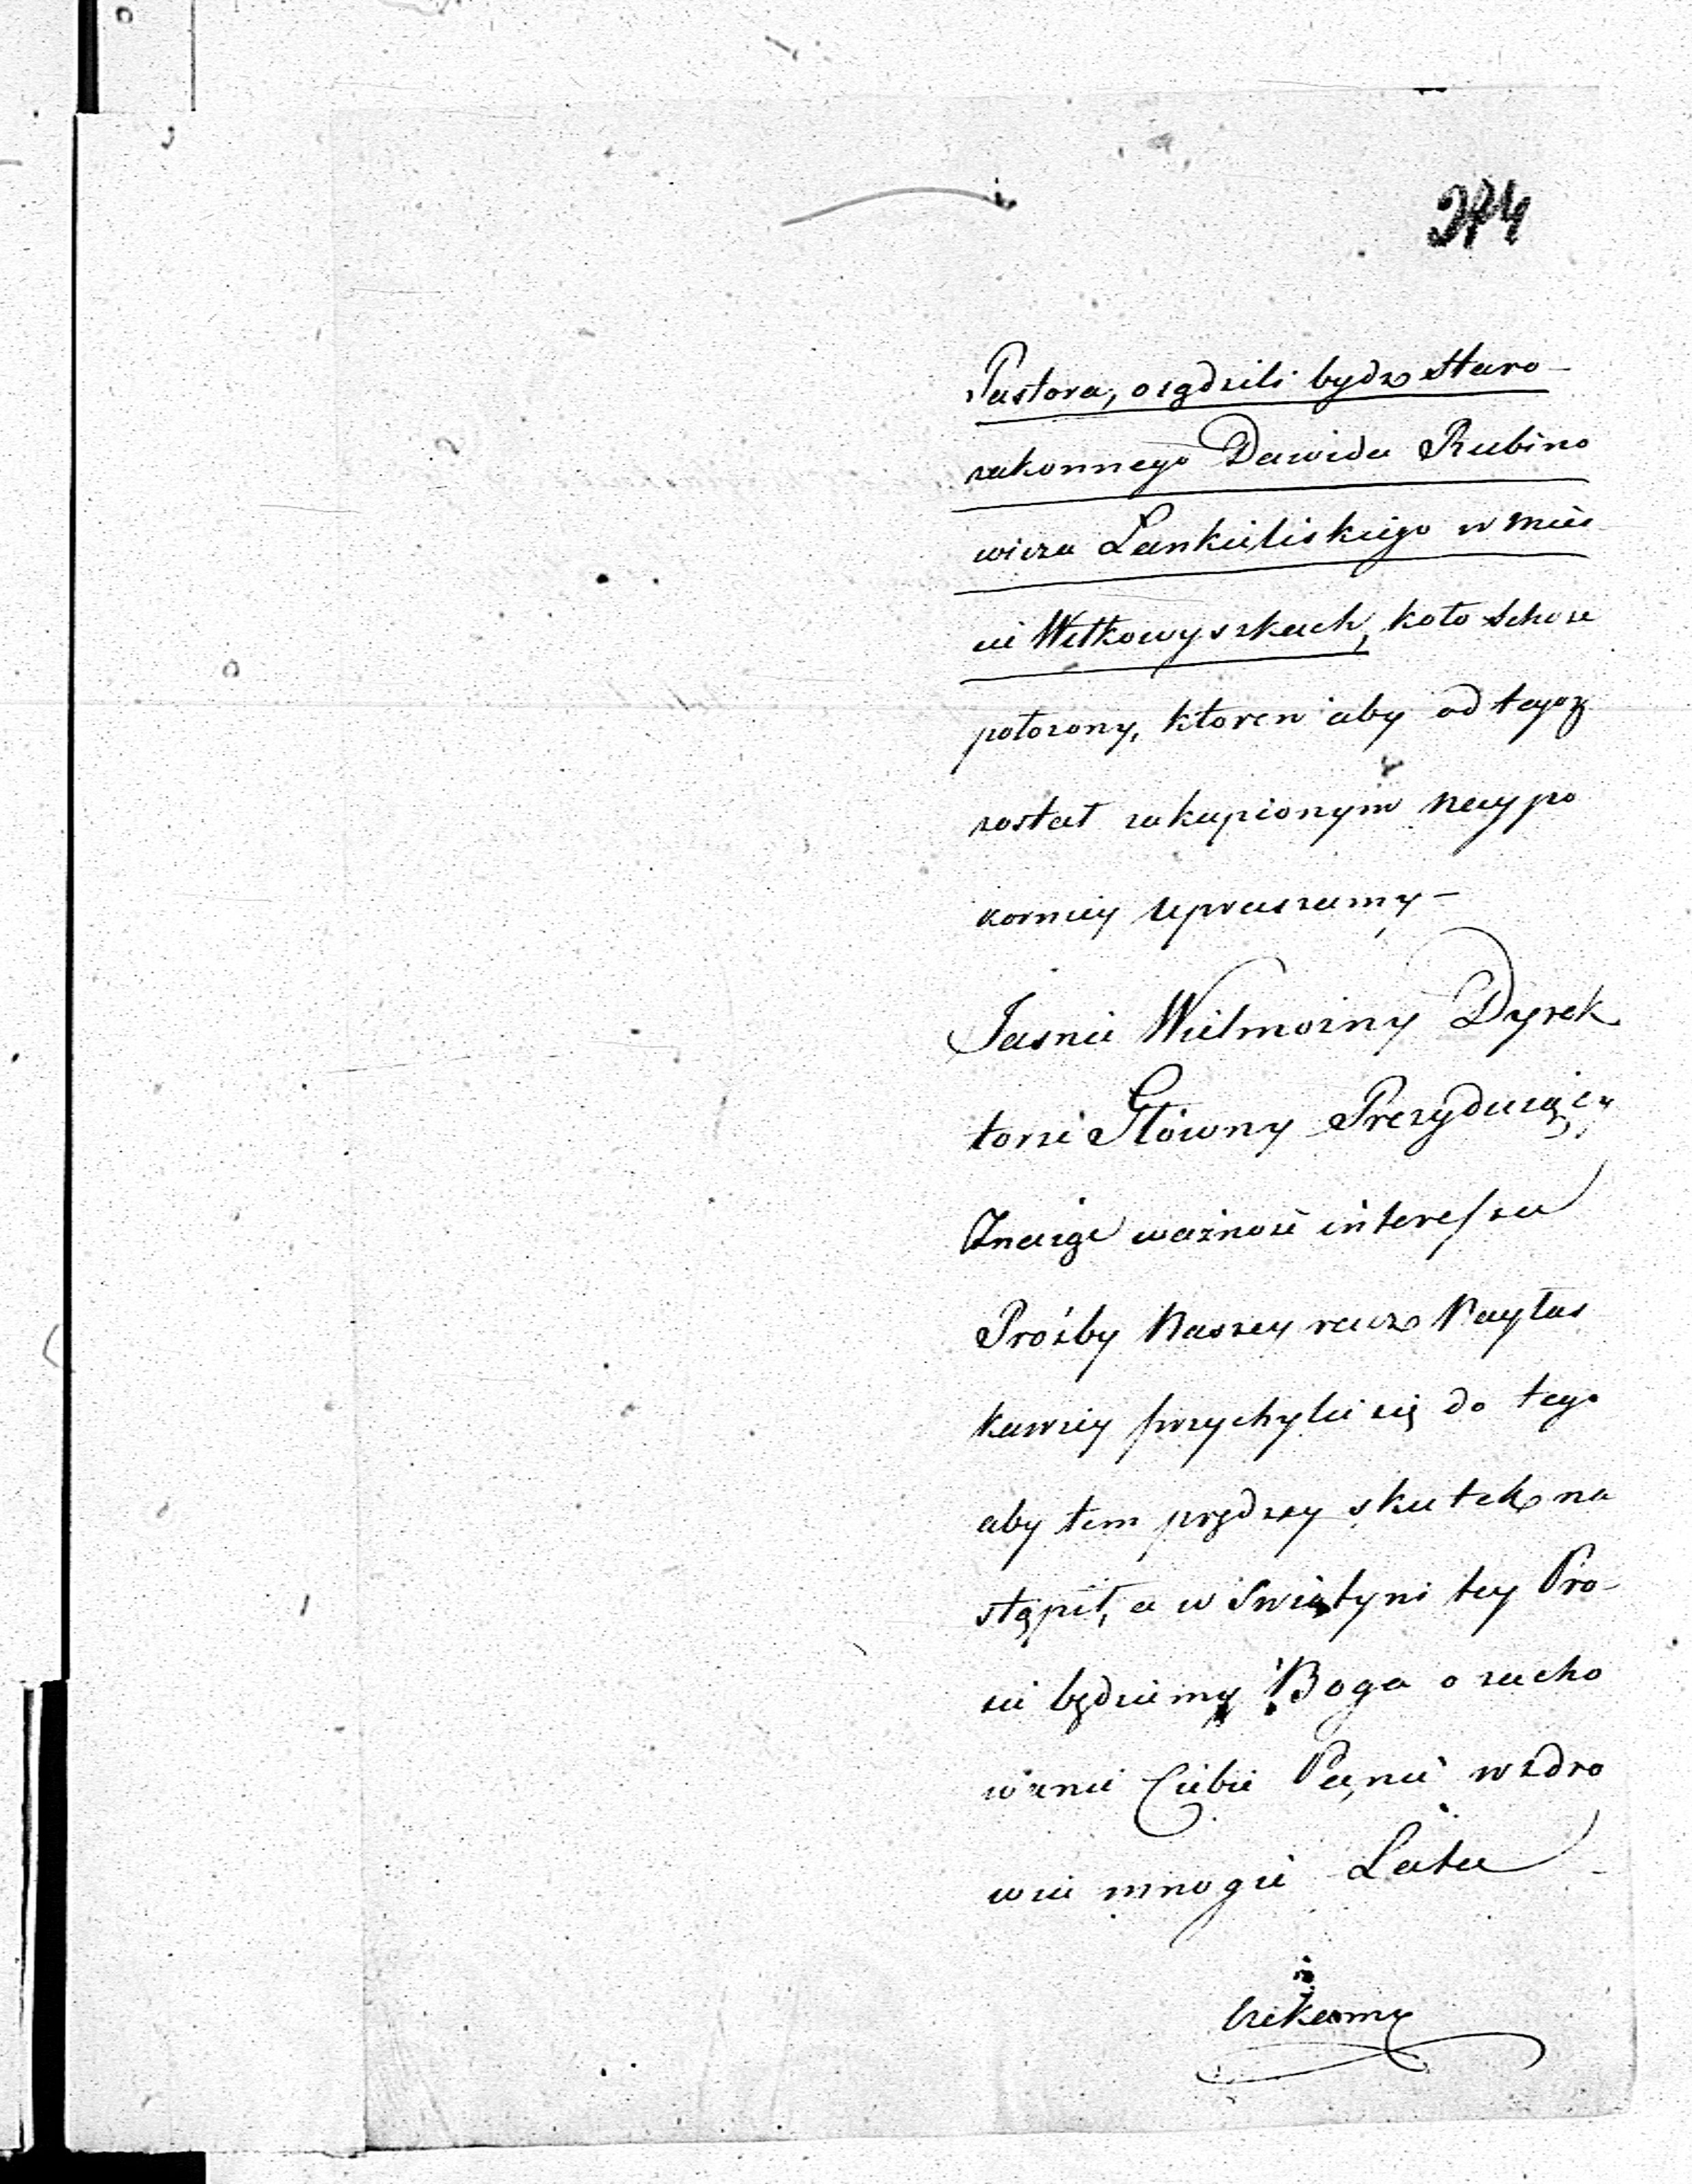 274
Pastora, osądzili bydz Staro-
zakonnego Dawida Rubino
wicza Lankieliskiego w mieś
cie Wełkowyszkach, koło Schose
położony, ktoren aby od tegoz
został zakupionym nay po
korniey upraszamy —
Jasnie Wielmożny Dyrek
torze Główny Prezyduiący
Znaiąc ważność interessu
Prośby Naszey racz Nayłas
kawiey przychylić się do tego
aby tem prędzey skutek na
stąpił, a w Swiątyni tey Pro-
sić będziemy Boga o zacho
wanie Ciebie Panie w zdro
wiu mnogie Lata
Czekamy